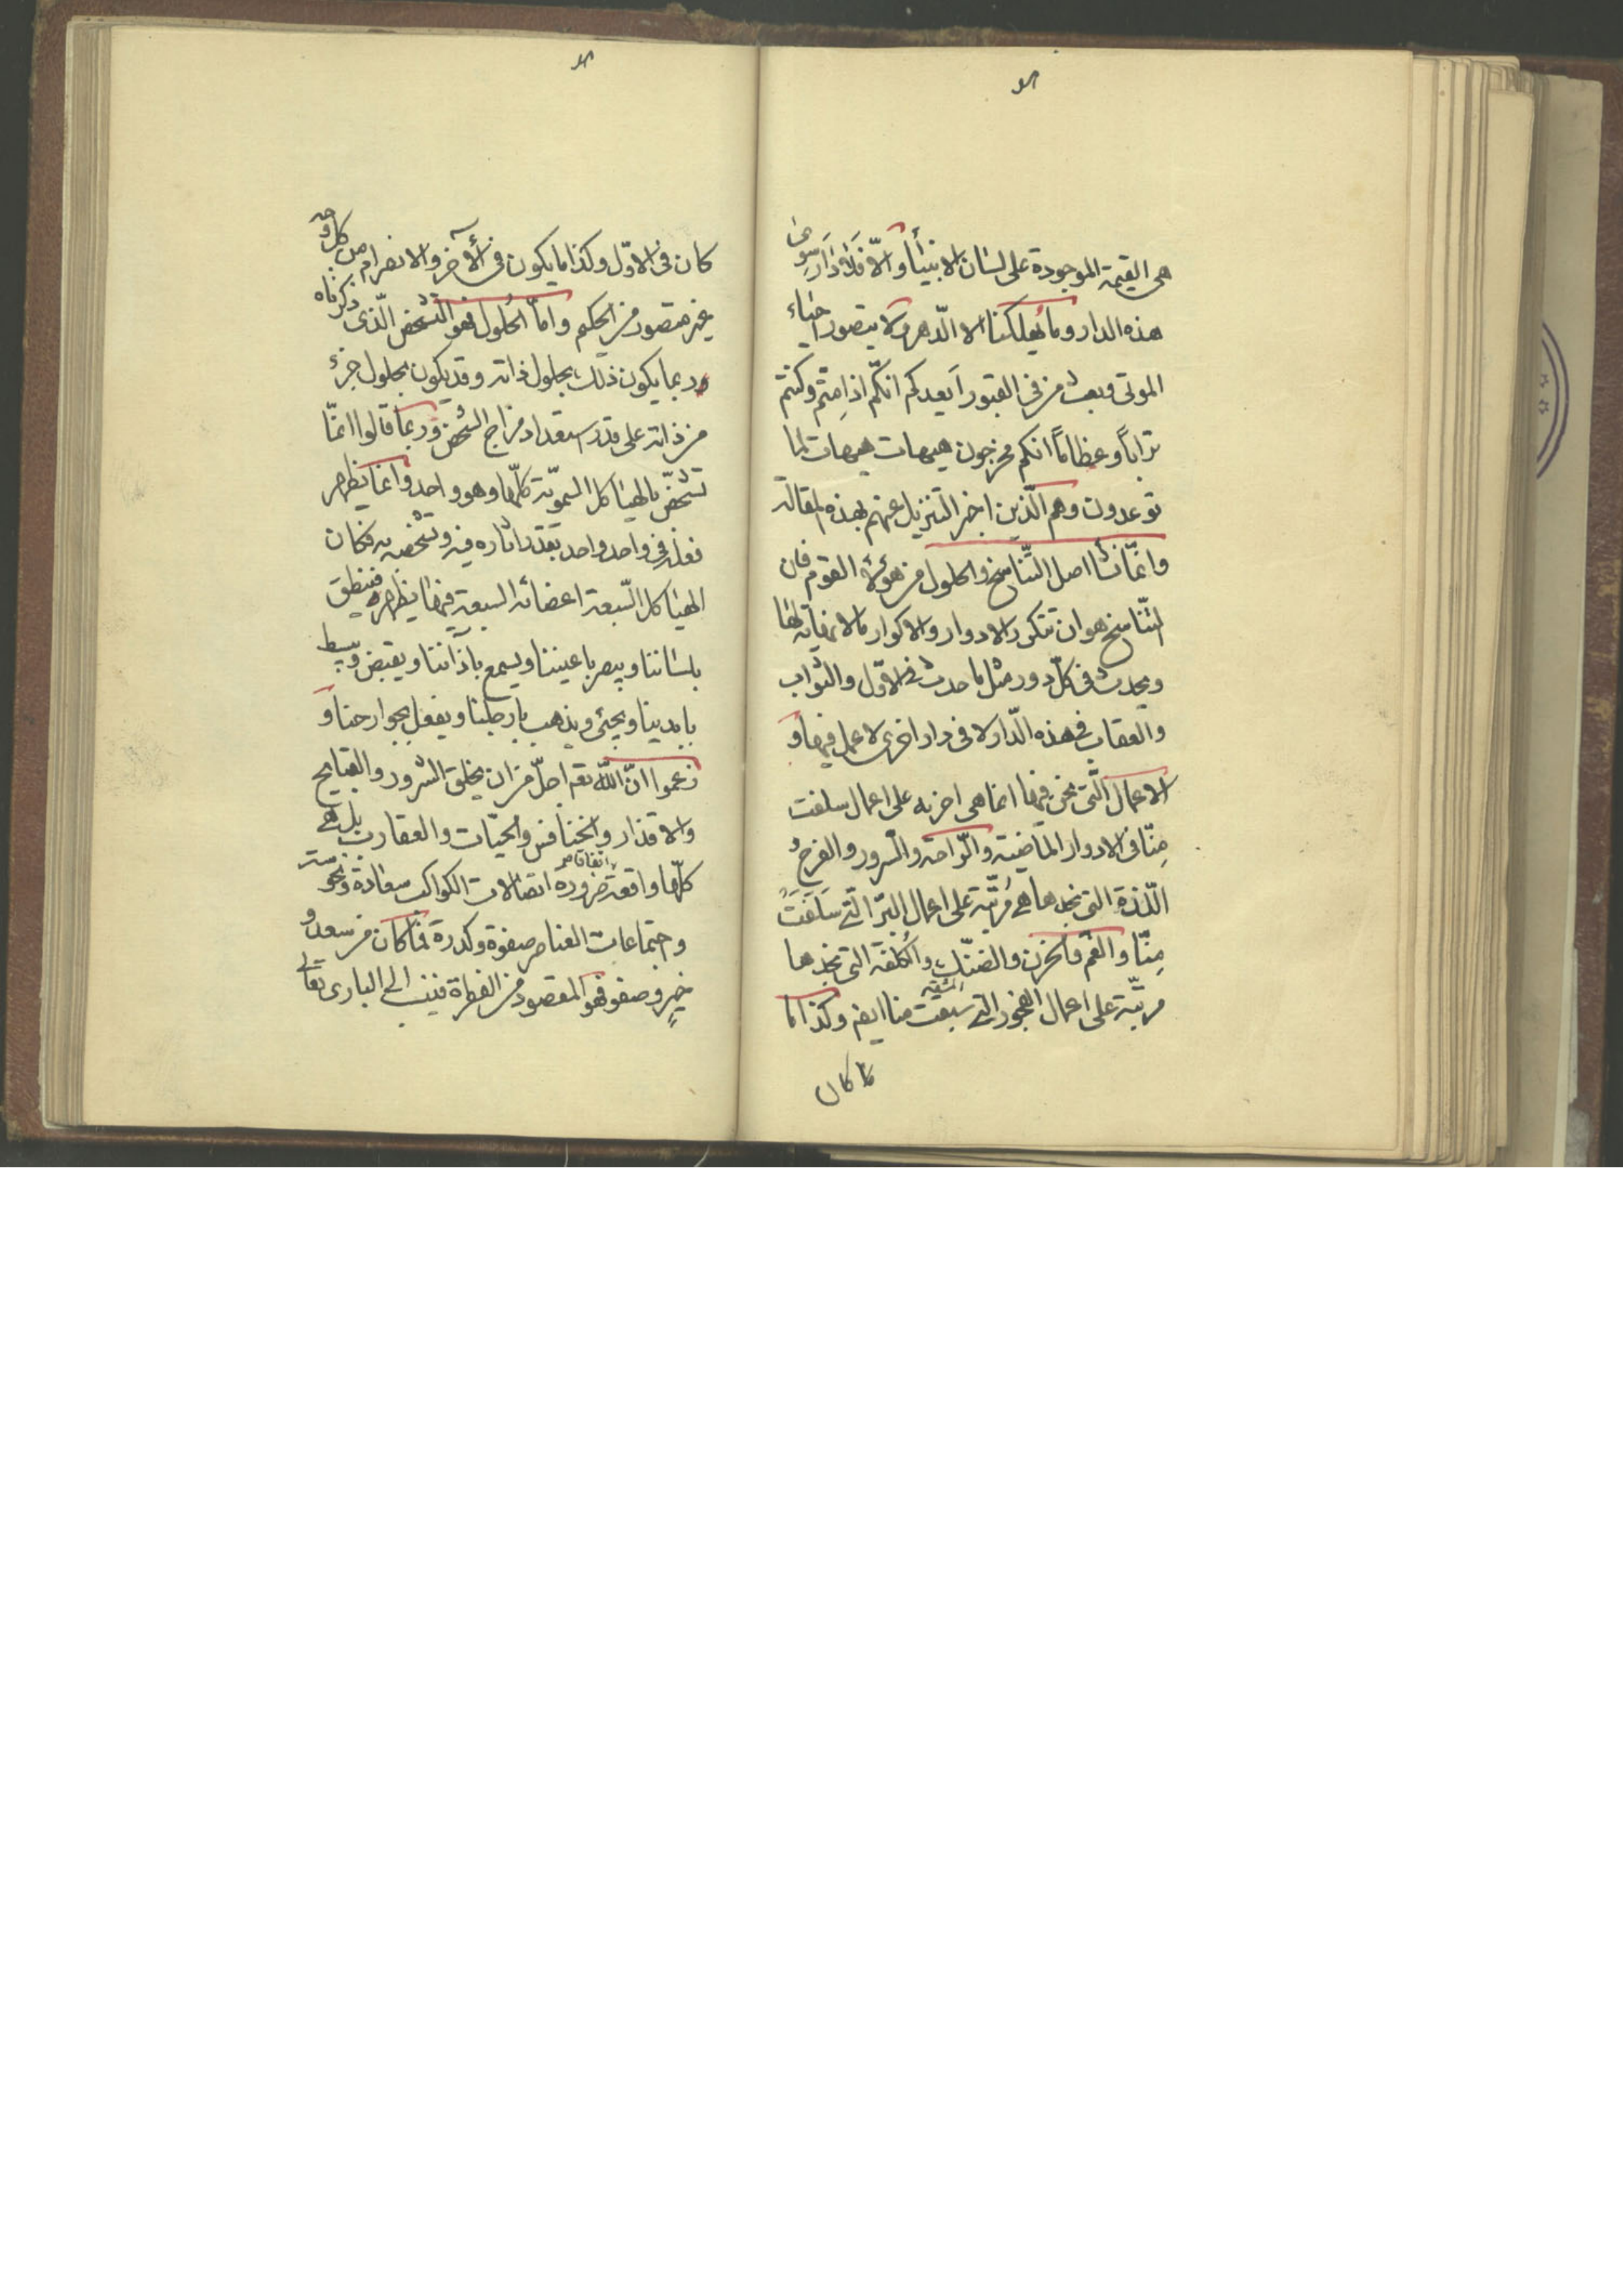 هى القيمة الموجودة على لسان الانبيأ والّا فلا دَار سِوى
هذه الدار وما يُهلكنا الا الدّهر ولا يتصور احيَاء
الموتى وبعث من فى القبور اَيعدكم انكّم اذا مِتّم وكنتم
تراباً وعظاماً انكم مخرجون هيهات هيهات لما
توعدون وهم الّذين اخبر التنزيل عنهم بهذه المقالة
وانمّا نشأ اصل التّناسخ والحلول من هؤلاء القوم فان
التّناسخ هو ان تتكرر الادوار والاكوار ما لا نهاية لها
ويحدث فى كلّ دور مثل ما حدث فى الاوّل والثواب
والعقاب فى هذه الدّار لا فى دار اخرى لا عمل فيها و
الاعمال الّتى نحن فيها انما هى اجزية على اعمال سلفت
مِنّا فى الادوار الماضية والرّاحة والسرور والفرح و
الّلذة التى نجدها هى مُرتّبة على اعمال البرّ الّتى سَلَفَتْ
مِنّا والغم والحزن والضنك والكُلفة التى نجدها
مرتّبة على اعمال الفجور التى سبقت منا ايضا وكذا ما
كما كان
كان فى الاوّل وكذا ما يكون فى الأخر والانصرام من كل وجه
غير متصور من الحكيم وامّا الحُلول فهو التشخص الّذى ذكرناه
وربما يكون ذلك بحلول ذاته وقد يكون بحلول جزء
من ذاته على قدر استعداد مزاج الشخص وربمّا قالوا انمّا
تشخّص بالهياكل السمويّة كلّها وهو واحد وانما يظهر
فعله فى واحد واحد بقدر اثاره فيه وتشخصه به فكان
الهياكل السّبعة اعضائه السبعة فيها يظهر فينطق
بلسَاننا ويبصر باعيننا ويسمع باذآننا ويقبض ويبسط
بايدينا ويجئ ويذهب بارجلنا ويفعل بجوارحنا و
زعموا انّ اللّه تعه اجلّ من ان يخلق الشرور والقبايح
والاقذار والخنافس والحيّات والعقارب بل هى
كلّها واقعة ضرورة اتصالات الكواكب سعادة ونحوسة
وجتماعات العناصر صفوة وكدرة فما كان من سعد و
خيرٍ وصفو فهو المقصود من الفطرة فينسب الى البارى تعالى